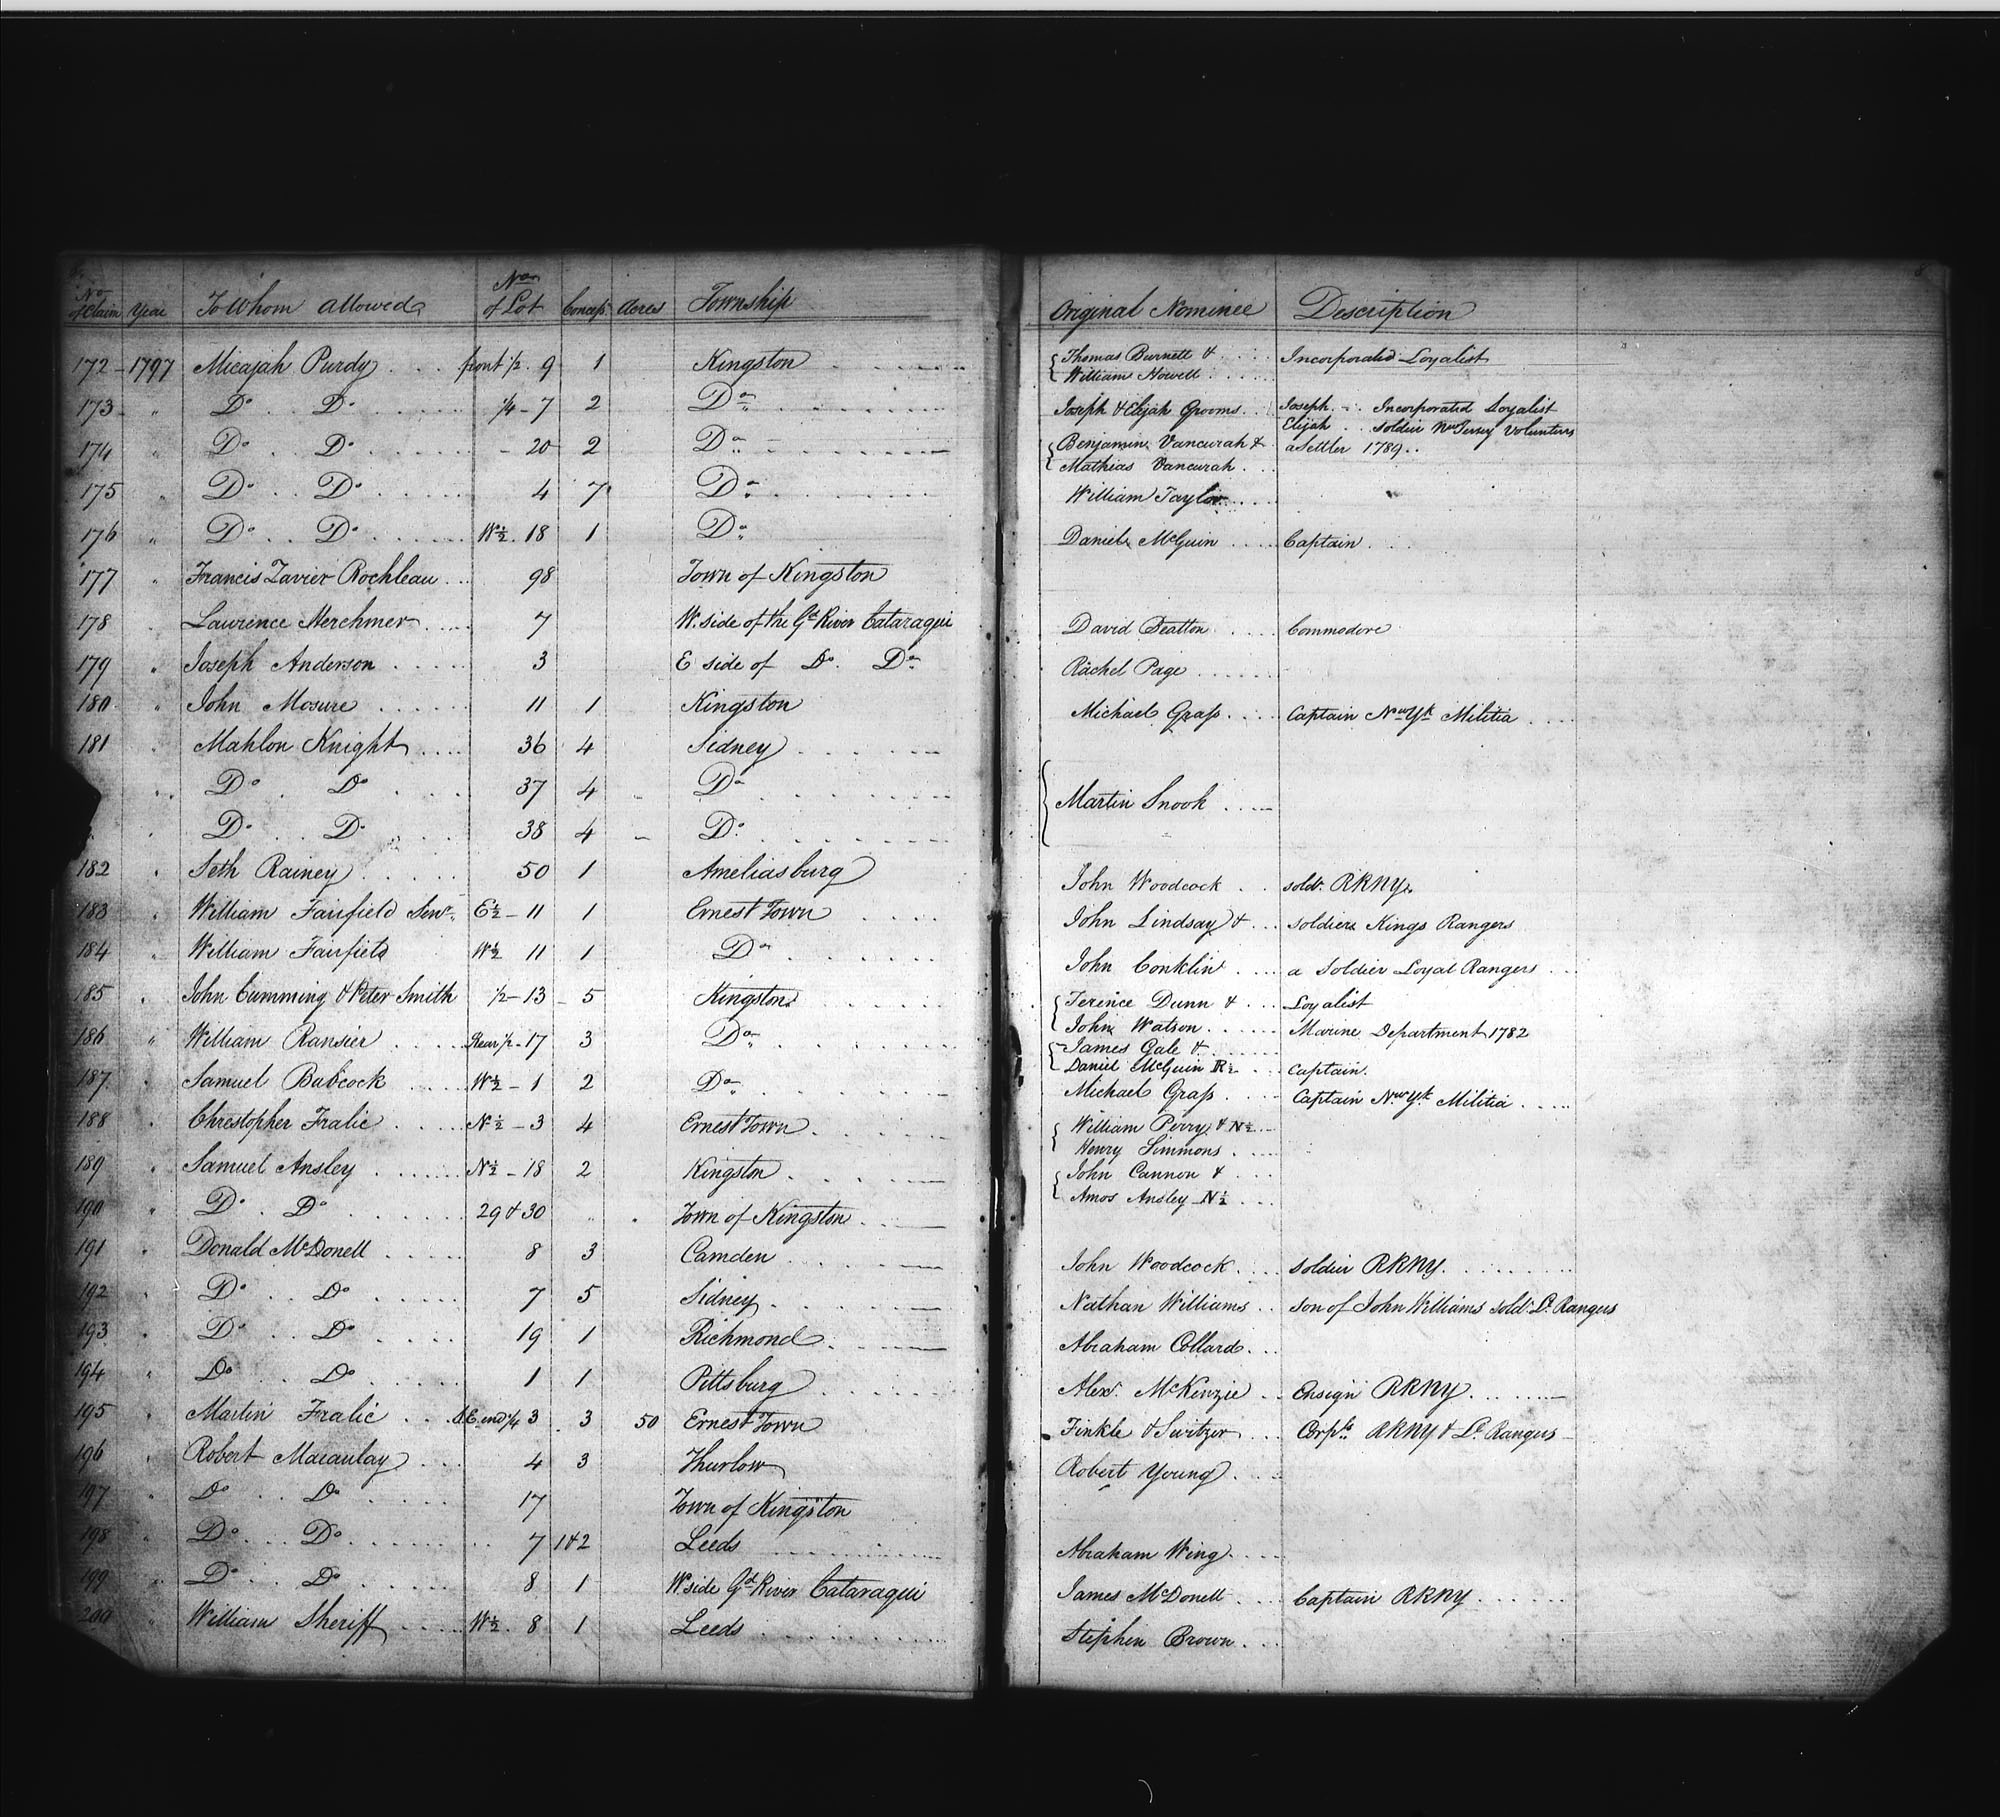 No of Claim Year To Whom allowed Nor of Lot Concess Acres Township
172 - 1797 Micajah Purdy front 1/2 . 9 1 Kingston
173 " Do Do 1/4 - 7 2 Do
174 " Do Do - 20 2 Do
175 " Do Do 4 7 Do
176 " Do Do W 1/2 . 18 1 Do
177 " Francis Zavier Rochleau 98 Town of Kingston
178 " Lawrence Herchmer 7 W. side of the Gt River Cataraqui
179 " Joseph Anderson 3 E side of Do. Do
180 " John Mosure 11 1 Kingston
181 " Mahlon Knight 36 4 Sidney
" Do Do 37 4 Do
" Do Do 38 4 Do
182 " Seth Rainey 50 1 Ameliasburg
183 " William Fairfield Senr. E 1/2 - 11 1 Ernest Town
184 " William Fairfield W 1/2 11 1 Do
185 " John Cumming & Peter Smith 1/2 - 13 - 5 Kingston
186 " William Ransier Rear 1/2 - 17 3 Do
187 " Samuel Babcock W 1/2 - 1 2 Do
188 " Chrestopher Fralic N 1/2 - 3 4 Ernest Town
189 " Samuel Ansley N 1/2 - 18 2 Kingston
190 " Do Do 29 & 30 " Town of Kingston
191 " Donald McDonell 8 3 Camden
192 " Do Do 7 5 Sidney
193 " Do Do 19 1 Richmond
194 " Do Do 1 1 Pittsburg
195 " Martin Fralic E. end 1/4 3 3 50 Ernest Town
196 " Robert Macaulay 4 3 Thurlow
197 " Do Do 17 Town of Kingston
198 " Do Do 7 1&2 Leeds
199 " Do Do 8 1 W side Gt River Cataraqui
200 " William Sheriff W 1/2 . 8 1 Leeds
8
Original Nominee Description
Thomas Burnett & Incorporated Loyalist
William Howell
Joseph & Elijah Grooms Joseph - Incorporated Loyalist
Elijah . . soldier Nw Jersey Volunteers
Benjamin Vancurah & a Settler 1789
Mathias Vancurah
William Taylor
Daniel McGuin Captain
David Beatton Commodore
Rachel Page
Michael Grass Captain Nw Yk Militia
Martin Snook
John Woodcock soldr. RRNY.
John Lindsay & soldiers Kings Rangers
John Conklin a Soldier Loyal Rangers
Terence Dunn & Loyalist
John Watson Marine Department 1782
James Gale &
Daniel McGuin R 1/2 Captain.
Michael Grass Captain Nw Yk Militia
William Perry & N 1/2
Henry Simmons
John Cannon &
Amos Ansley N 1/2
John Woodcock soldier RRNY
Nathan Williams son of John Williams sold. Ll Rangers
Abraham Collard
Alexr. McKenzie Ensign RRNY
Finkle & Switzer Corpls. RRNY & Ll Rangers
Robert Young
Abraham Wing
James McDonell Captain RRNY
Stephen Brown